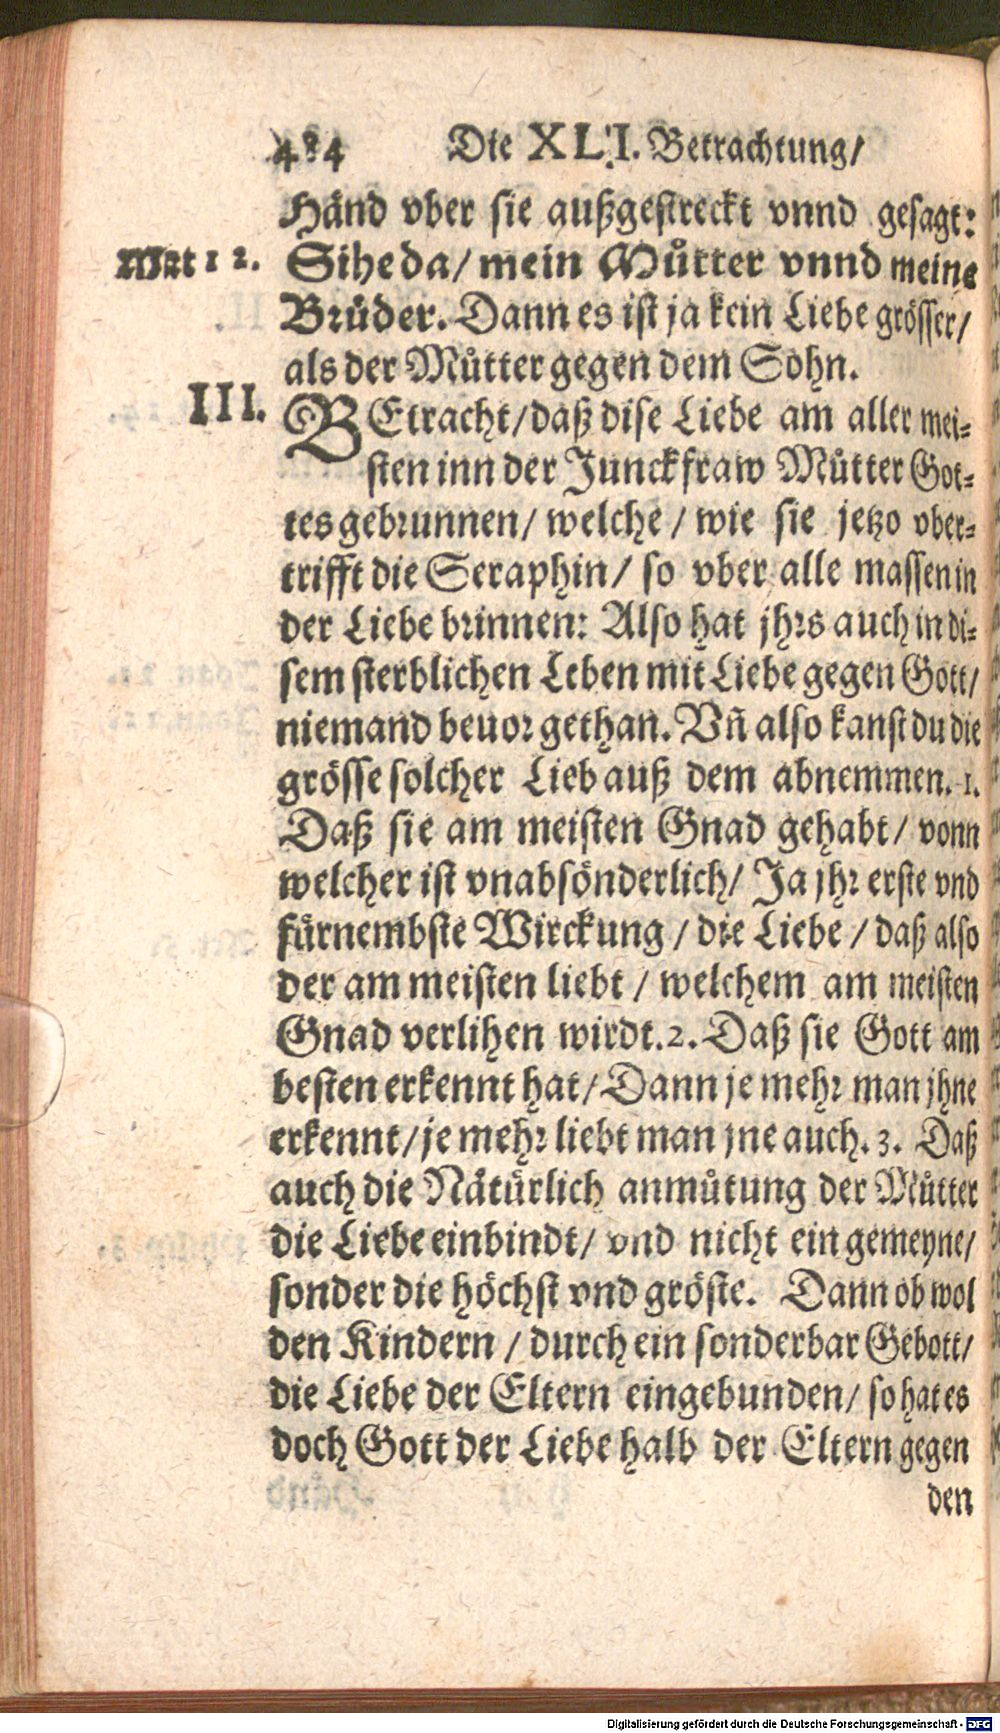 484 Die XLI. Betrachtung/
Händ vber sie außgestreckt vnnd gesagt:
Mat 12. Sihe da/ mein Můtter vnnd meine
Brüder. Dann es ist ja kein Liebe grösser/
als der Můtter gegen dem Sohn.
III. BEtracht/ daß dise Liebe am aller mei-
sten inn der Junckfraw Můtter Got-
tes gebrunnen/ welche / wie sie jetzo vber-
trifft die Seraphin/ so vber alle massen in
der Liebe brinnen: Also hat jhrs auch in di-
sem sterblichen Leben mit Liebe gegen Gott/
niemand beuor gethan. Vñ also kanst du die
grösse solcher Lieb auß dem abnemmen. 1.
Daß sie am meisten Gnad gehabt/ vonn
welcher ist vnabsönderlich/ Ja jhr erste vnd
fürnembste Wirckung / die Liebe / daß also
der am meisten liebt / welchem am meisten
Gnad verlihen wirdt. 2. Daß sie Gott am
besten erkennt hat/ Dann je mehr man jhne
erkennt/ je mehr liebt man jne auch. 3. Daß
auch die Nätürlich anmůtung der Můtter
die Liebe einbindt/ vnd nicht ein gemeyne/
sonder die höchst vnd gröste. Dann ob wol
den Kindern / durch ein sonderbar Gebott/
die Liebe der Eltern eingebunden/ so hat es
doch Gott der Liebe halb der Eltern gegen
den
Digitalisierung gefördert durch die Deutsche Forschungsgemeinschaft - DFG